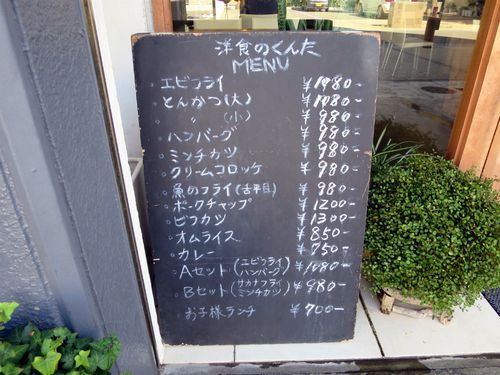 洋食のくんた
MENU
◦エビフライ ¥1980-
◦とんかつ(大) ¥1080-
◦ 〃 (小) ¥980-
◦ハンバーグ ¥980-
◦ミンチカツ ¥980-
◦クリームコロッケ ¥980-
◦魚のフライ(舌平目) ¥980-
◦ポークチャップ ¥1200-
◦ビフカツ ¥1300-
◦オムライス ¥850-
◦カレー ¥750-
◦Aセット(エビフライ ハンバーグ) ¥1080-
◦Bセット(サカナフライ ミンチカツ) ¥980-
◦お子様ランチ ¥700-